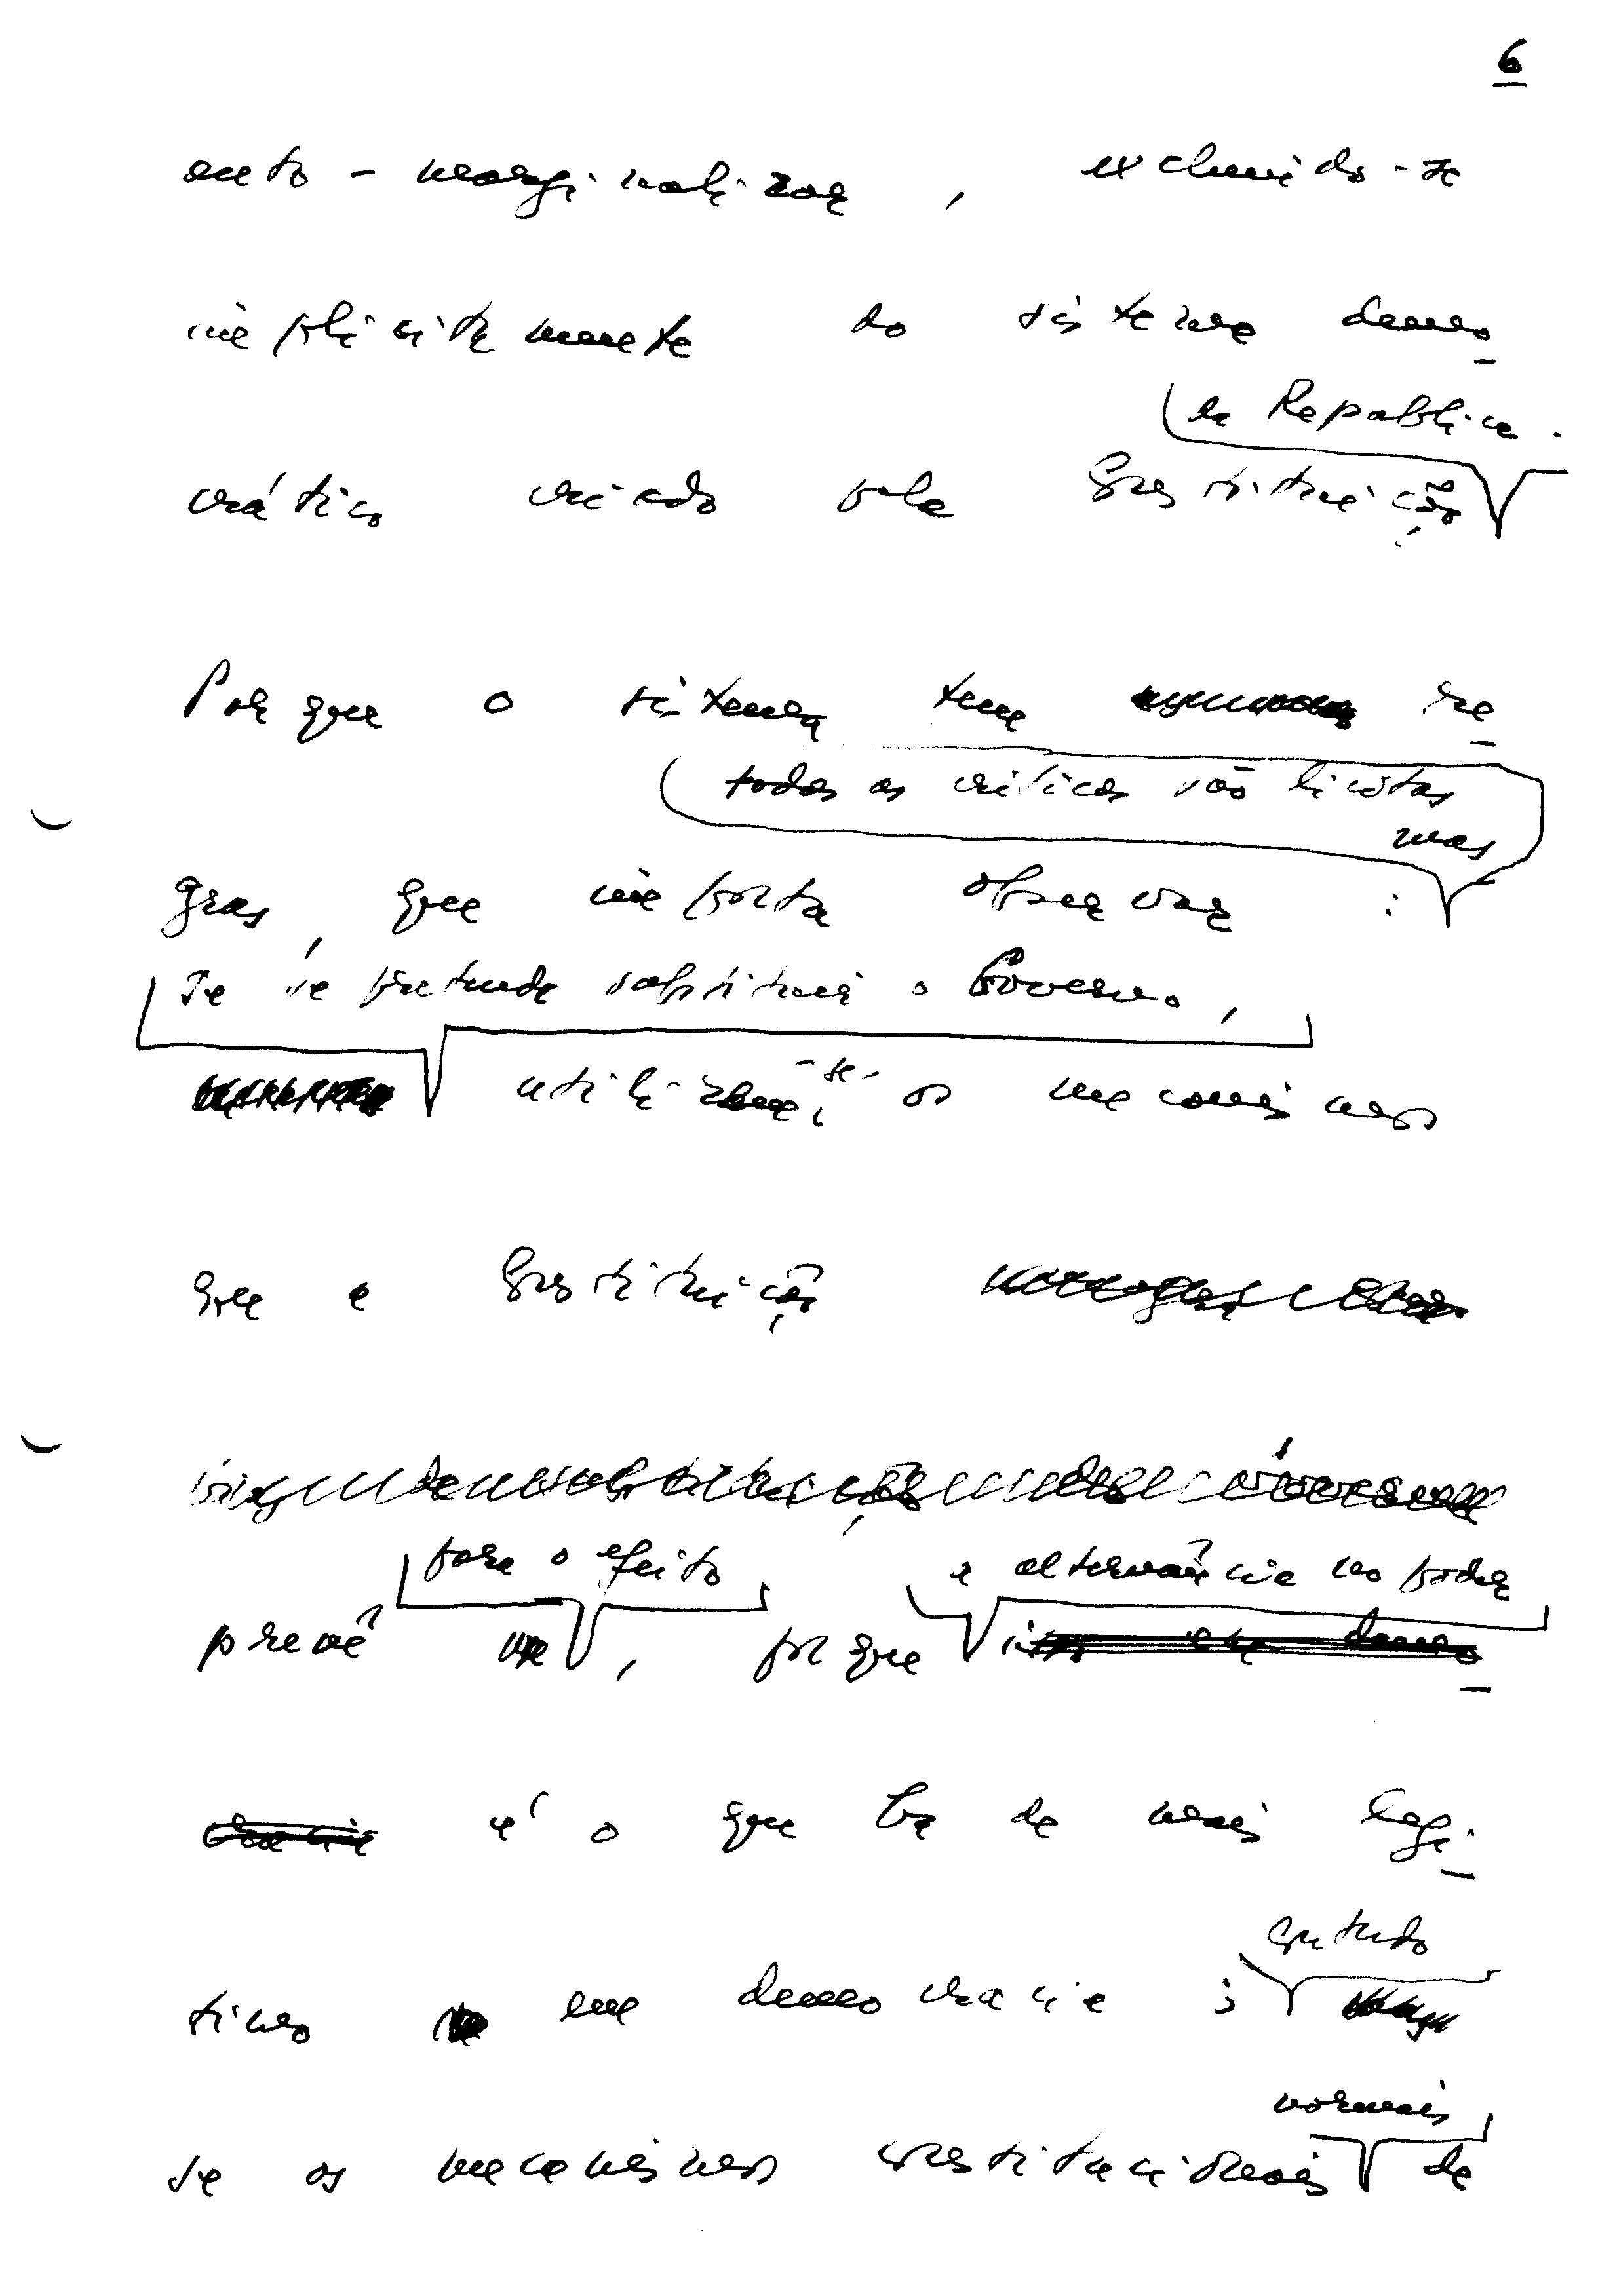 6
auto-marginalizar, excluindo-se
implicitamente do sistema demo_
da República.
crático criado pela Constituição
Porque o sistema tem re_
todas as críticas são lícitas
mas
gras, que importa observar :
Se se pretende substituir o Governo,
utilizem-se os mecanismos
que a Constituição
de substituição do Governo
para o efeito a alternância no poder
prevê, porque isso em demo_
cracia é o que há de mais legí_
contudo
timo em democracia ;
normais
se os mecanismos constitucionais de